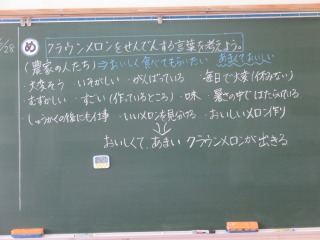 6/28
め クラウンメロンをせんでんする言葉を考えよう。
(農家の人たち) ⇒ おいしく食べてもらいたい あまくておいしい
・大変そう ・いそがしい ・がんばっている ・毎日で大変(休みない)
・むずかしい ・すごい(作っているところ) ・味 ・暑さの中ではたらいている
・しゅうかくの後にも仕事 ・いいメロンを見分ける ・おいしいメロン作り
おいしくて、あまい クラウンメロンが出きる